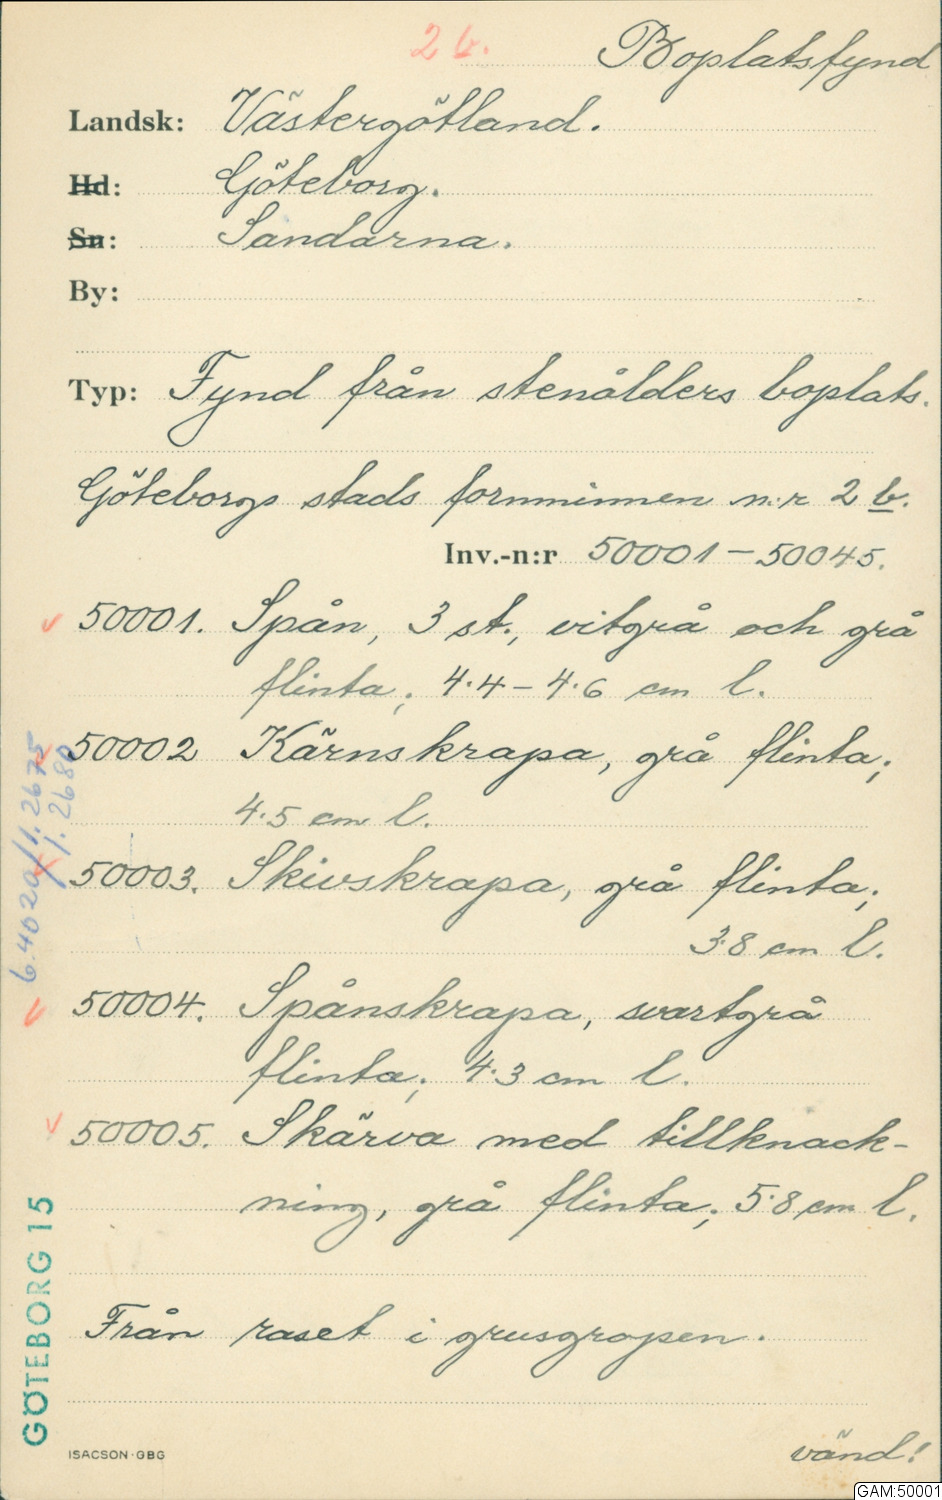 2 b.
Boplatsfynd
Landsk: Västergötland.
Hd: Göteborg.
Sn: Sandarna.
By:
Typ: Fynd från stenålders boplats.
Göteborgs stads fornminnen n:r 2 b.
Inv.-n:r 50001–50045.
50001. Spån, 3 st., vitgrå och grå
flinta; 4.4 – 4.6 cm l.
50002 Kärnskrapa, grå flinta;
4.5 cm l.
50003. Skivskrapa, grå flinta;
3.8 cm l.
50004. Spånskrapa, svartgrå
flinta; 4.3 cm l.
50005. Skärva med tillknack-
ning, grå flinta; 5.8 cm l.
Från raset i grusgropen.
vänd!
6.4020/1.2675
/1.2680
GÖTEBORG 15
ISACSON·GBG
GAM:50001